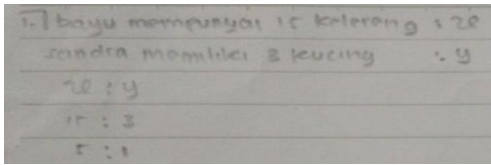 1. bayu mempunyai 15 kelereng : x
sandra memiliki 3 kucing : y
x : y
15 : 3
5 : 1